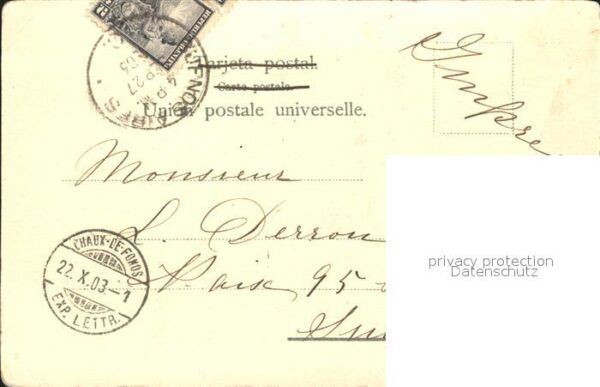 BUENOS AIRES
SEP 27
4 P.M.
03
Tarjeta postal.
Carte postale.
Union postale universelle.
Monsieur
L. Derron
Paix 95
CHAUX-DE-FONDS
22.X.03-1
EXP. LETTR.
privacy protection
Datenschutz